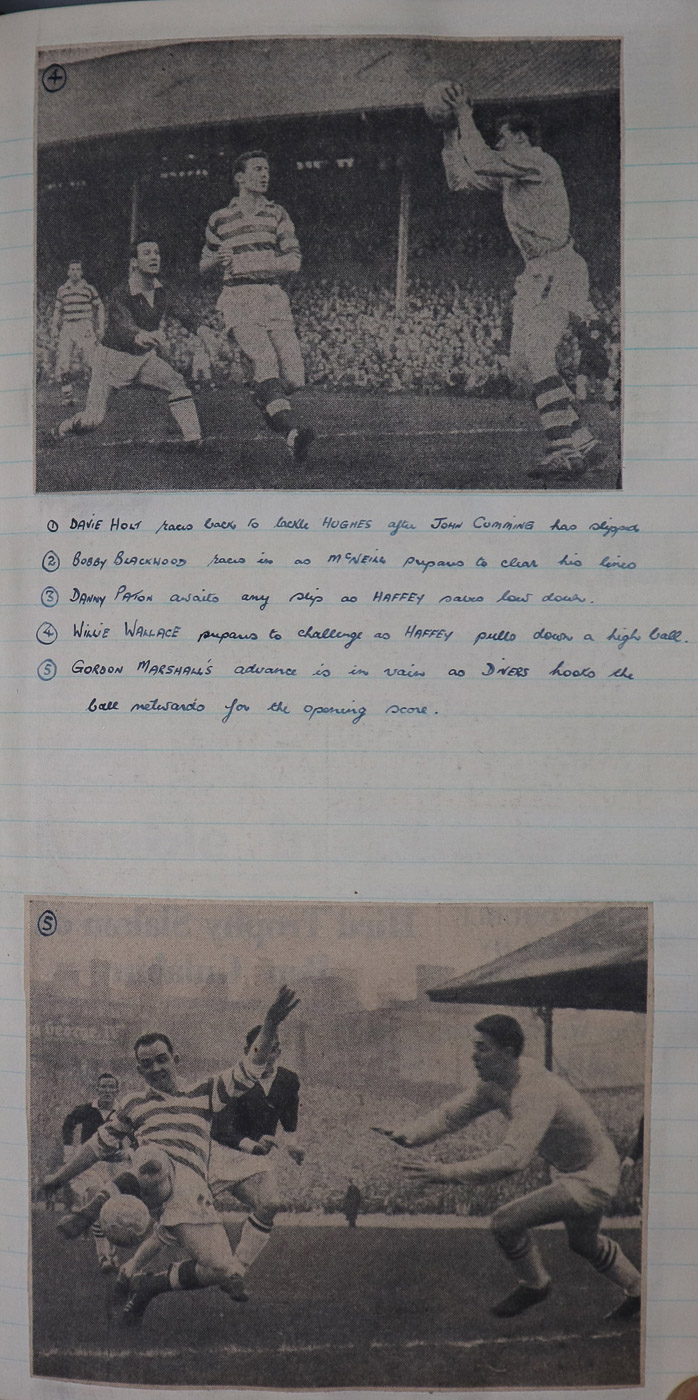 4
① DAVIE HOLT races back to tackle HUGHES after JOHN CUMMING has slipped
② BOBBY BLACKWOOD races in as McNEILL prepares to clear his lines
③ DANNY PATON awaits any slip as HAFFEY saves low down.
④ WILLIE WALLACE prepares to challenge as HAFFEY pulls down a high ball.
⑤ GORDON MARSHALL'S advance is in vain as DIVERS hooks the
ball netwards for the opening score.
5